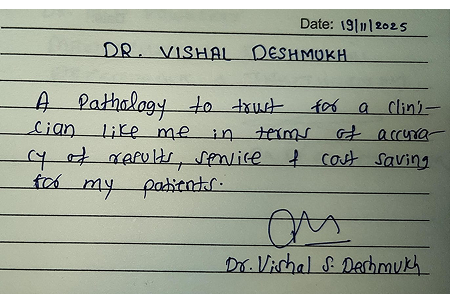 Date: 19/11/2025
DR. VISHAL DESHMUKH
A Pathology to trust for a clini-
cian like me in terms of accura-
cy of results, service & cost saving
for my patients.
Dr. Vishal S. Deshmukh